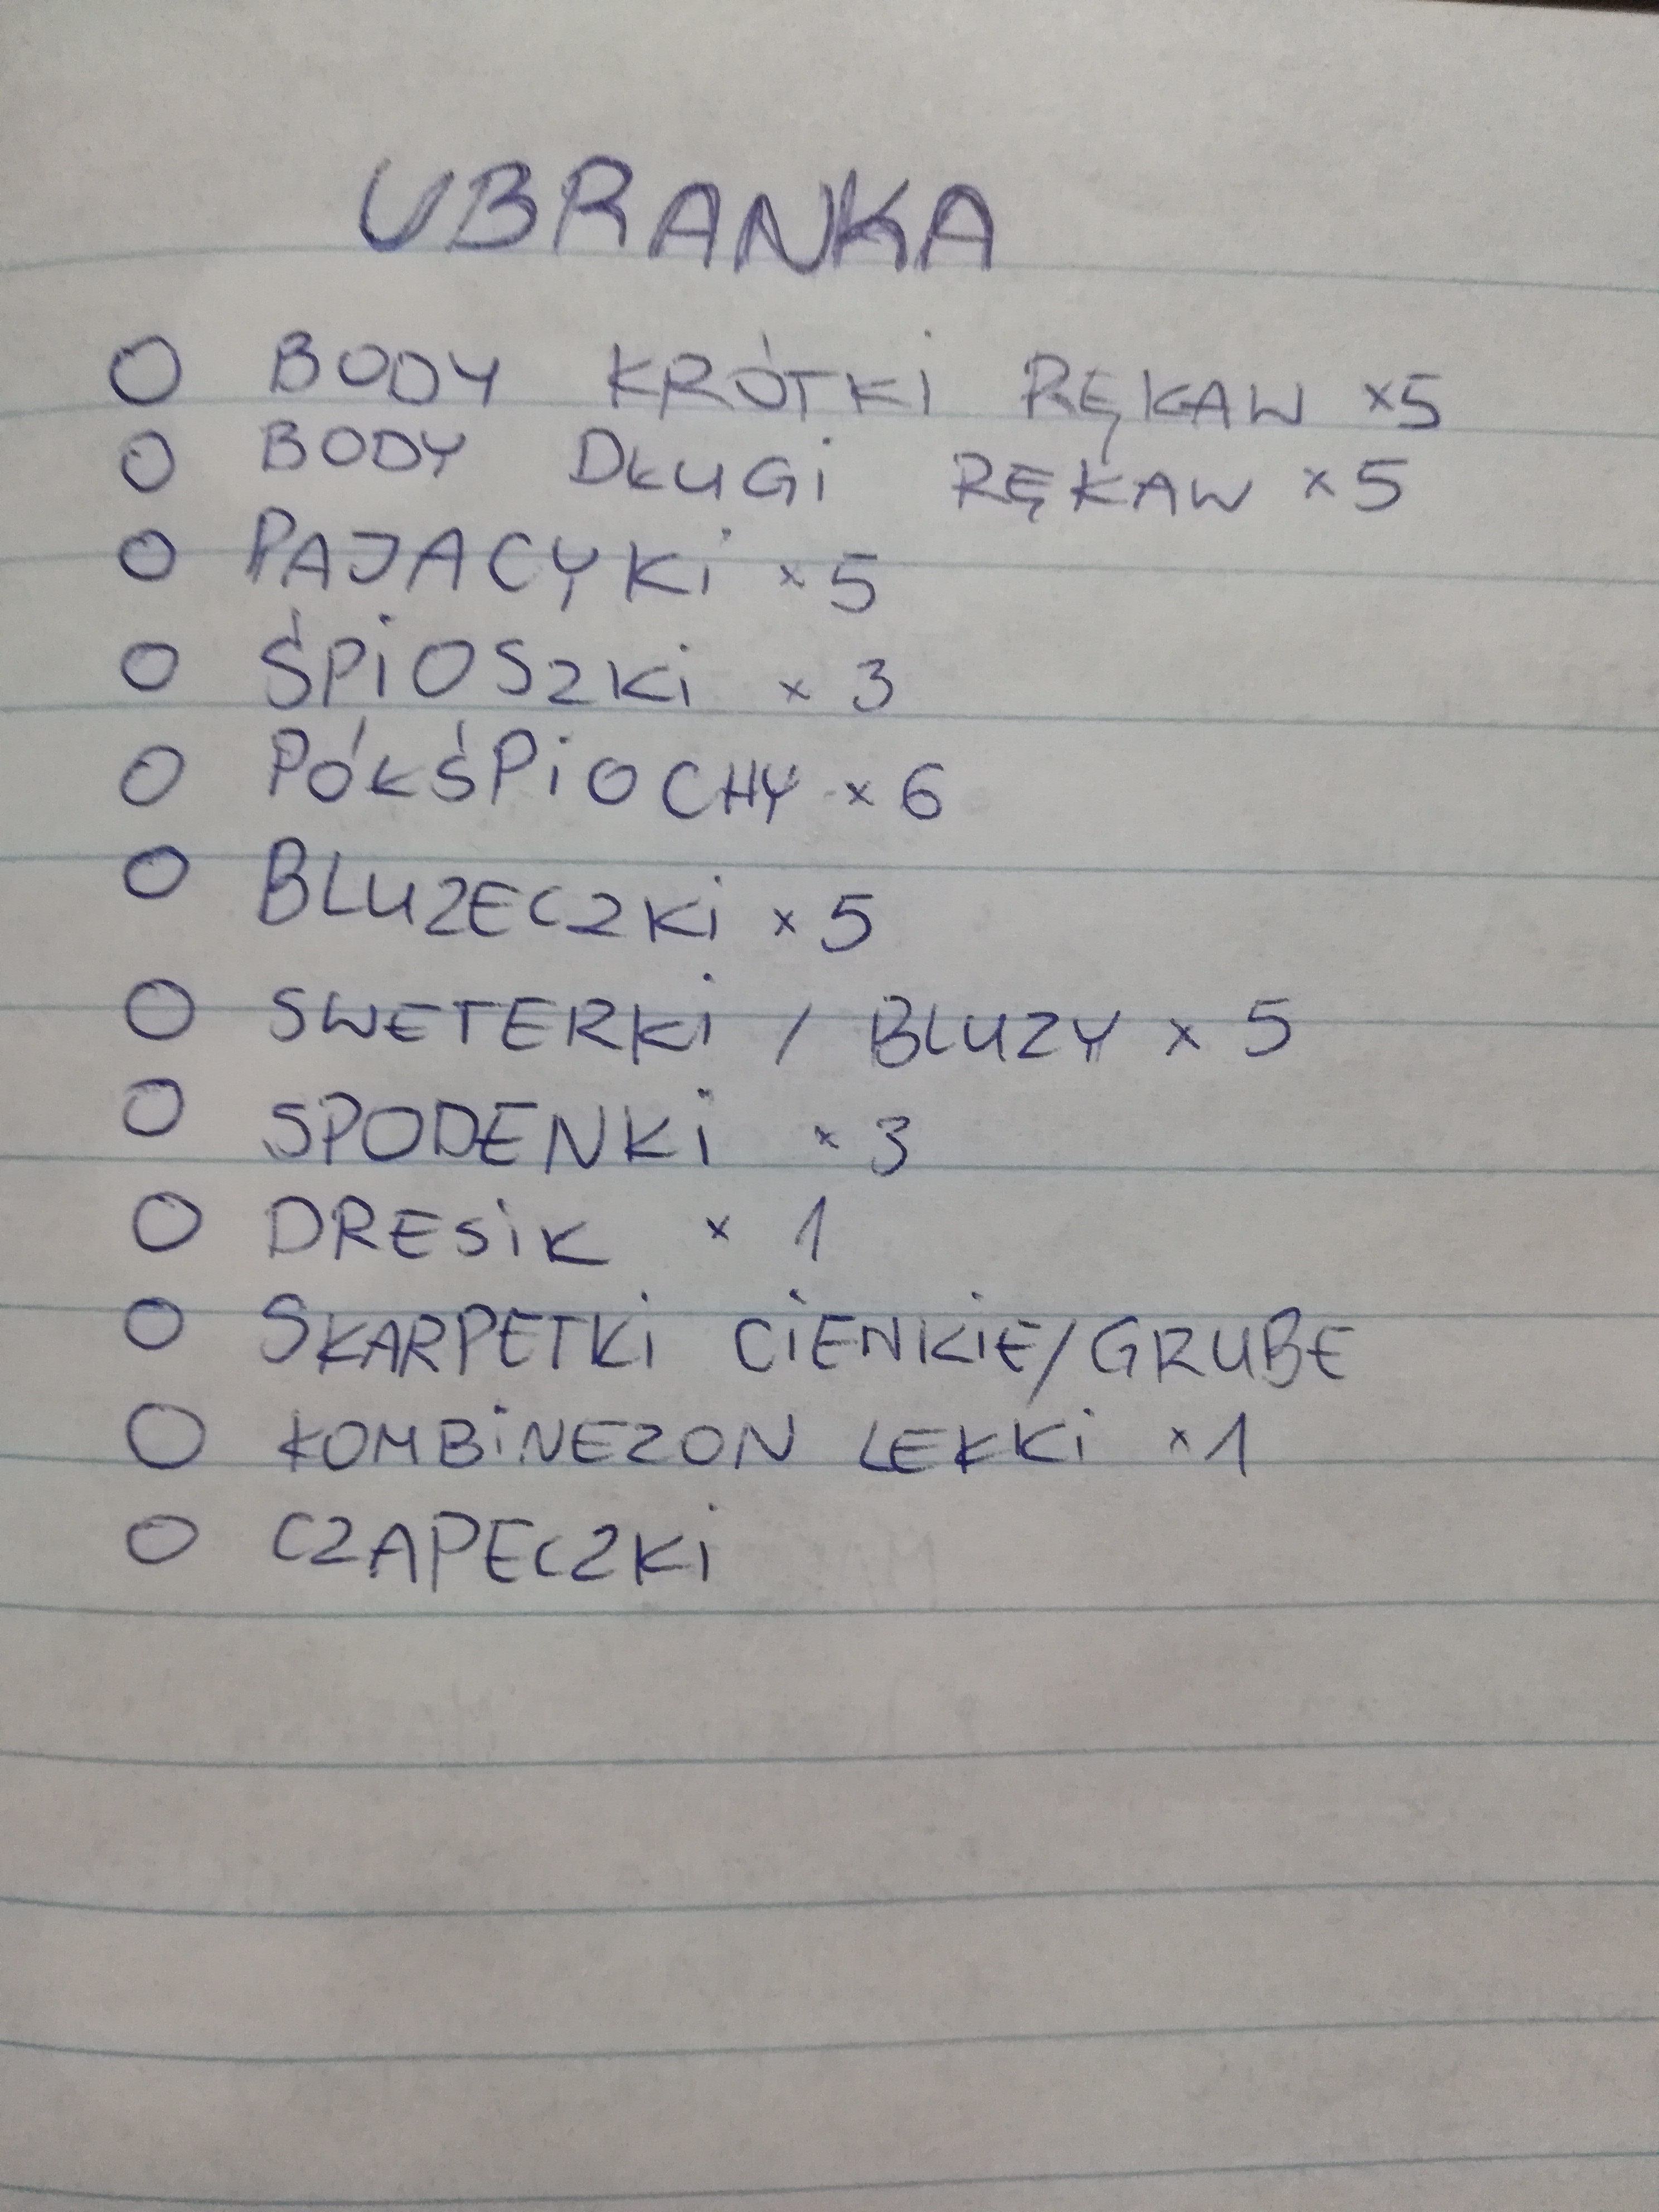 UBRANKA
O BODY KRÓTKI RĘKAW x5
O BODY DŁUGI RĘKAW x5
O PAJACYKI x5
O ŚPIOSZKI x 3
O PÓŁŚPIOCHY x 6
O BLUZECZKI x 5
O SWETERKI / BLUZY x 5
O SPODENKI x 3
O DRESIK x 1
O SKARPETKI CIENKIE/GRUBE
O KOMBINEZON LEKKI x1
O CZAPECZKI